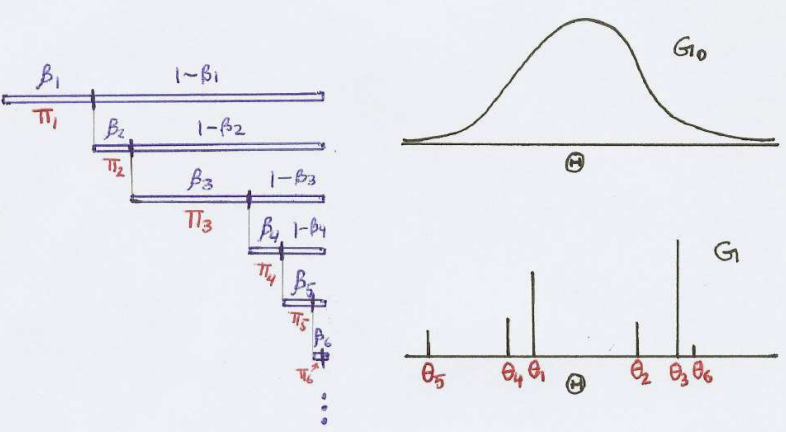 β1 1-β1
π1
β2 1-β2
π2
β3 1-β3
π3
β4 1-β4
π4
β5
π5
β6
π6
G0
Θ
G
θ5 θ4 θ1 θ2 θ3 θ6
Θ